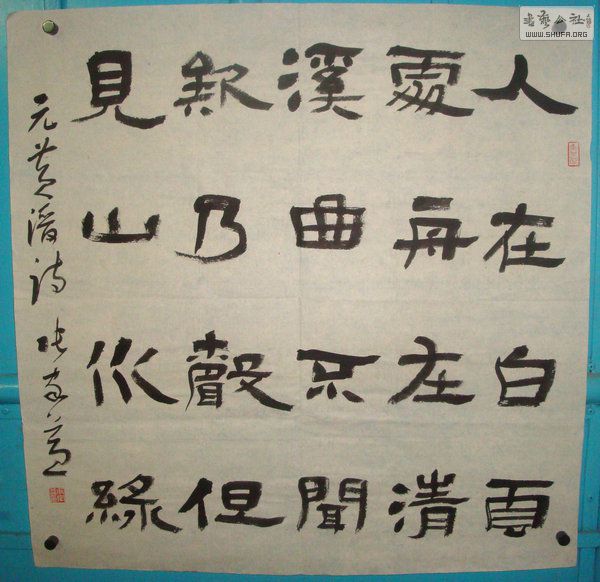 人在白頁
處舟在清
溪曲只聞
欸乃聲但
見山水綠
元黄溍诗
书艺公社
WWW.SHUFA.ORG